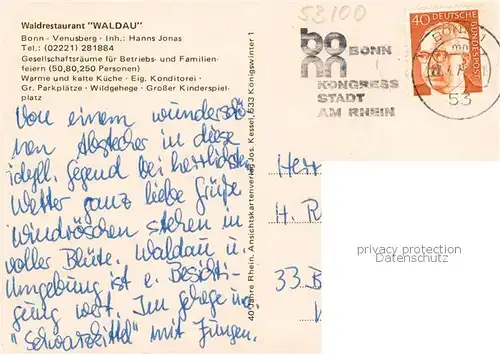 Waldrestaurant "WALDAU"
Bonn - Venusberg · Inh.: Hanns Jonas
Tel.: (02221) 281884
Gesellschaftsräume für Betriebs- und Familien-
feiern (50,80,250 Personen)
Warme und kalte Küche · Eig. Konditorei ·
Gr. Parkplätze · Wildgehege · Großer Kinderspiel-
platz
Von einem wunderschö
nen Abstecher in diese
idyll. Gegend bei herrlichsten
Wetter ganz liebe Grüße
Windröschen stehen in
voller Blüte. Waldau u.
Umgebung ist e. Besichti-
gung wert. Im Gehege ist
"Schwarzkittel" mit Jungen.
40 Jahre Rhein. Ansichtskartenverlag Jos. Kessel, 533 Königswinter 1
53100
bonn
BONN
KONGRESS
STADT
AM RHEIN
40 DEUTSCHE
BUNDESPOST
BONN 1
mn
53
Herr
H. R
33 B
privacy protection
Datenschutz